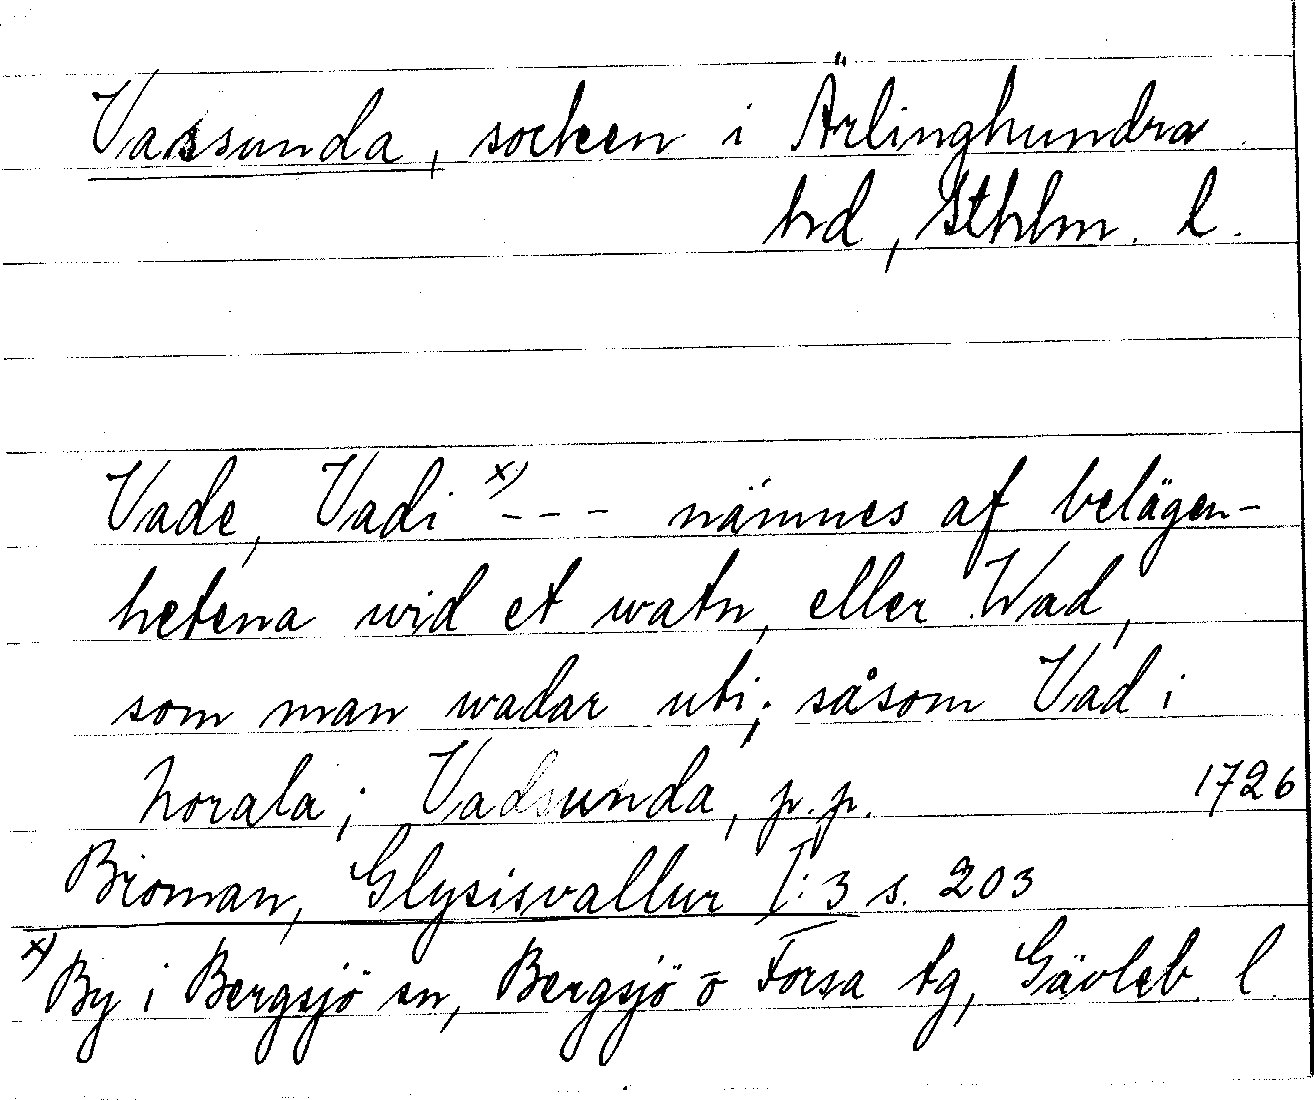 Vassunda, socken i Ärlinghundra
hd, Sthlm. l.
Vade, Vadi x) --- nämnes af belägen-
hetena wid et watn, eller Wad,
som man wadar uti; såsom Vad i
Norala; Vadsunda, p.p. 1726
Broman, Glysisvallur I:3 s. 203
x) By i Bergsjö sn, Bergsjö o Forsa tg, Gävleb. l.